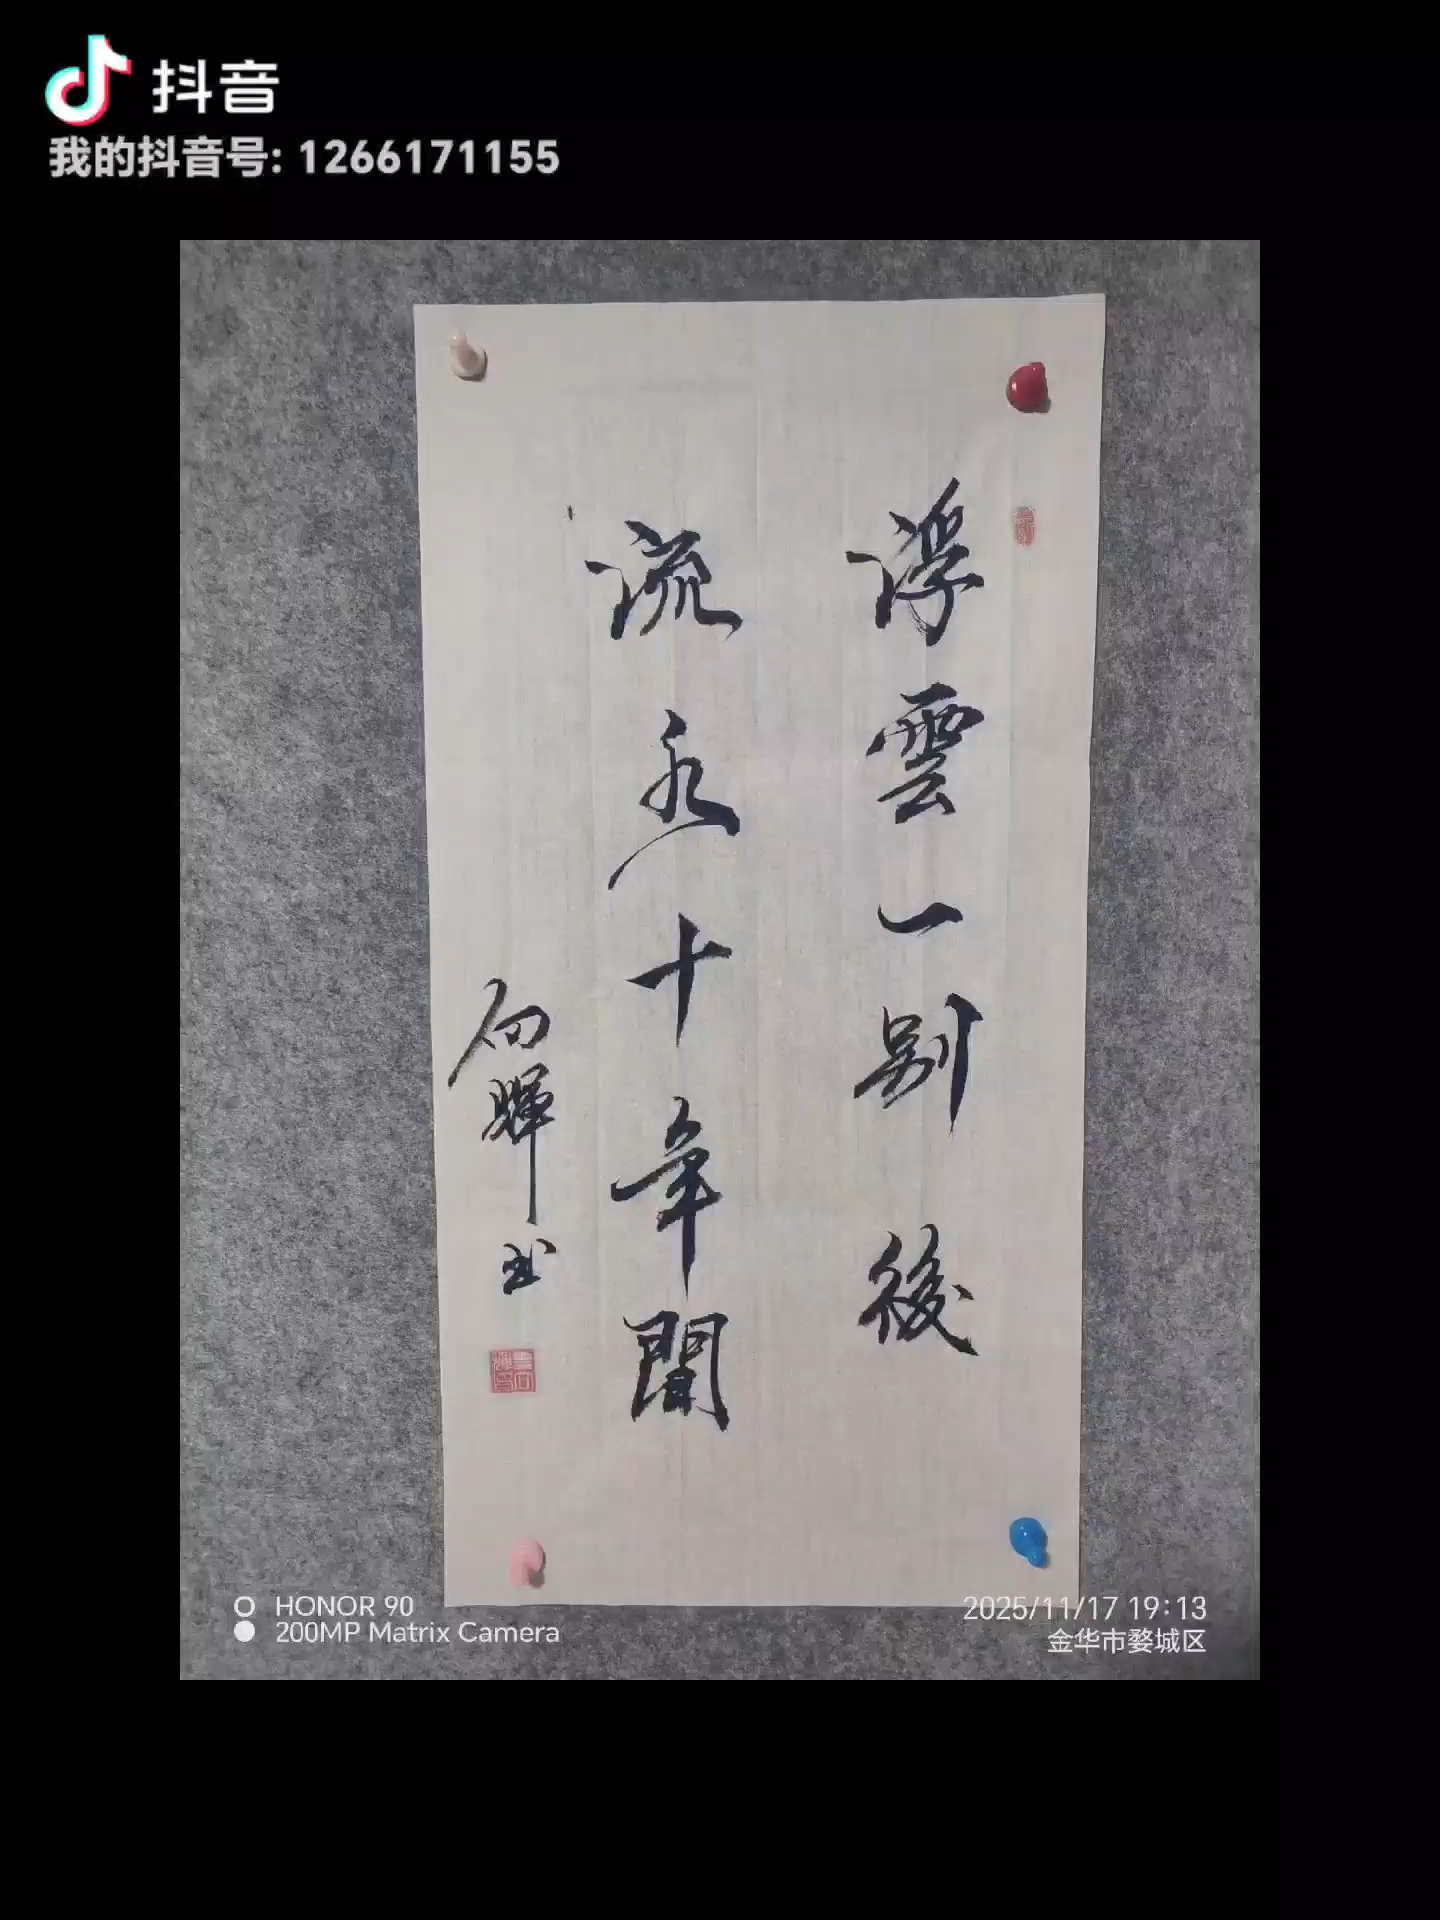 抖音
我的抖音号: 1266171155
浮雲一别後
流水十年間
向暉书
HONOR 90
200MP Matrix Camera
2025/11/17 19:13
金华市婺城区